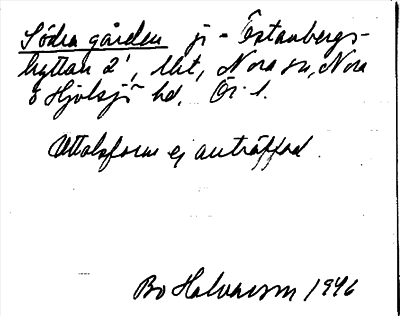 Södra gården ji - Östanbergs-
hyttan 2', lht, Nora sn, Nora
o Hjulsjö hd, Ör. l.
Uttalsform ej anträffad.
Bo Halvarson 1946